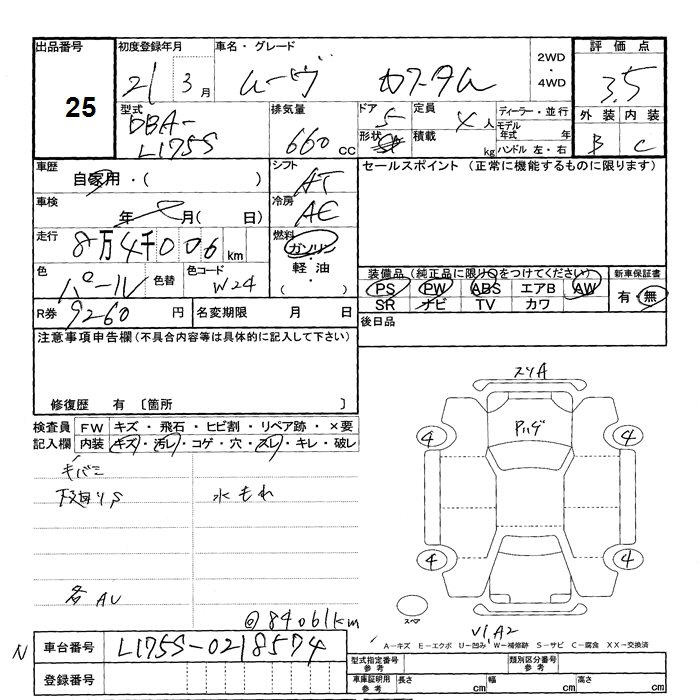 出品番号 初度登録年月 車名・グレード 2WD 評価点
25 21 3月 ムーヴ カスタム ・4WD 3.5
型式 排気量 ドア 定員 ディーラー・並行 外装 内装
DBA- 660cc 5 4人 モデル年式 年 B C
L175S 形状 積載 kg ハンドル 左・右
車歴 シフト セールスポイント (正常に機能するものに限ります)
自家用・( ) AT
車検 冷房
年 月( 日) AC
走行 燃料
8万4千006km ガソリン
色 色替 色コード ・軽油 装備品(純正品に限り○をつけてください) 新車保証書
パール W24 ・( ) PS PW ABS エアB AW 有・無
R券 9260円 名変期限 月 日 SR ナビ TV カワ
注意事項申告欄(不具合内容等は具体的に記入して下さい) 後日品
修復歴 有 [箇所 ]
スリA
検査員 FW キズ・飛石・ヒビ割・リペア跡・×要
記入欄 内装 キズ・汚レ・コゲ・穴・スレ・キレ・破レ
Aハゲ
4 4
水もれ
4 4
各AU
スペア
@84061km
V1, A2
A-キズ E-エクボ U-凹み W-補修跡 S-サビ C-腐食 XX-交換済
N 車台番号 L175S-0218574
型式指定番号 参考 類別区分番号 参考
登録番号 車庫証明用 参考 長さ cm 幅 cm 高さ cm